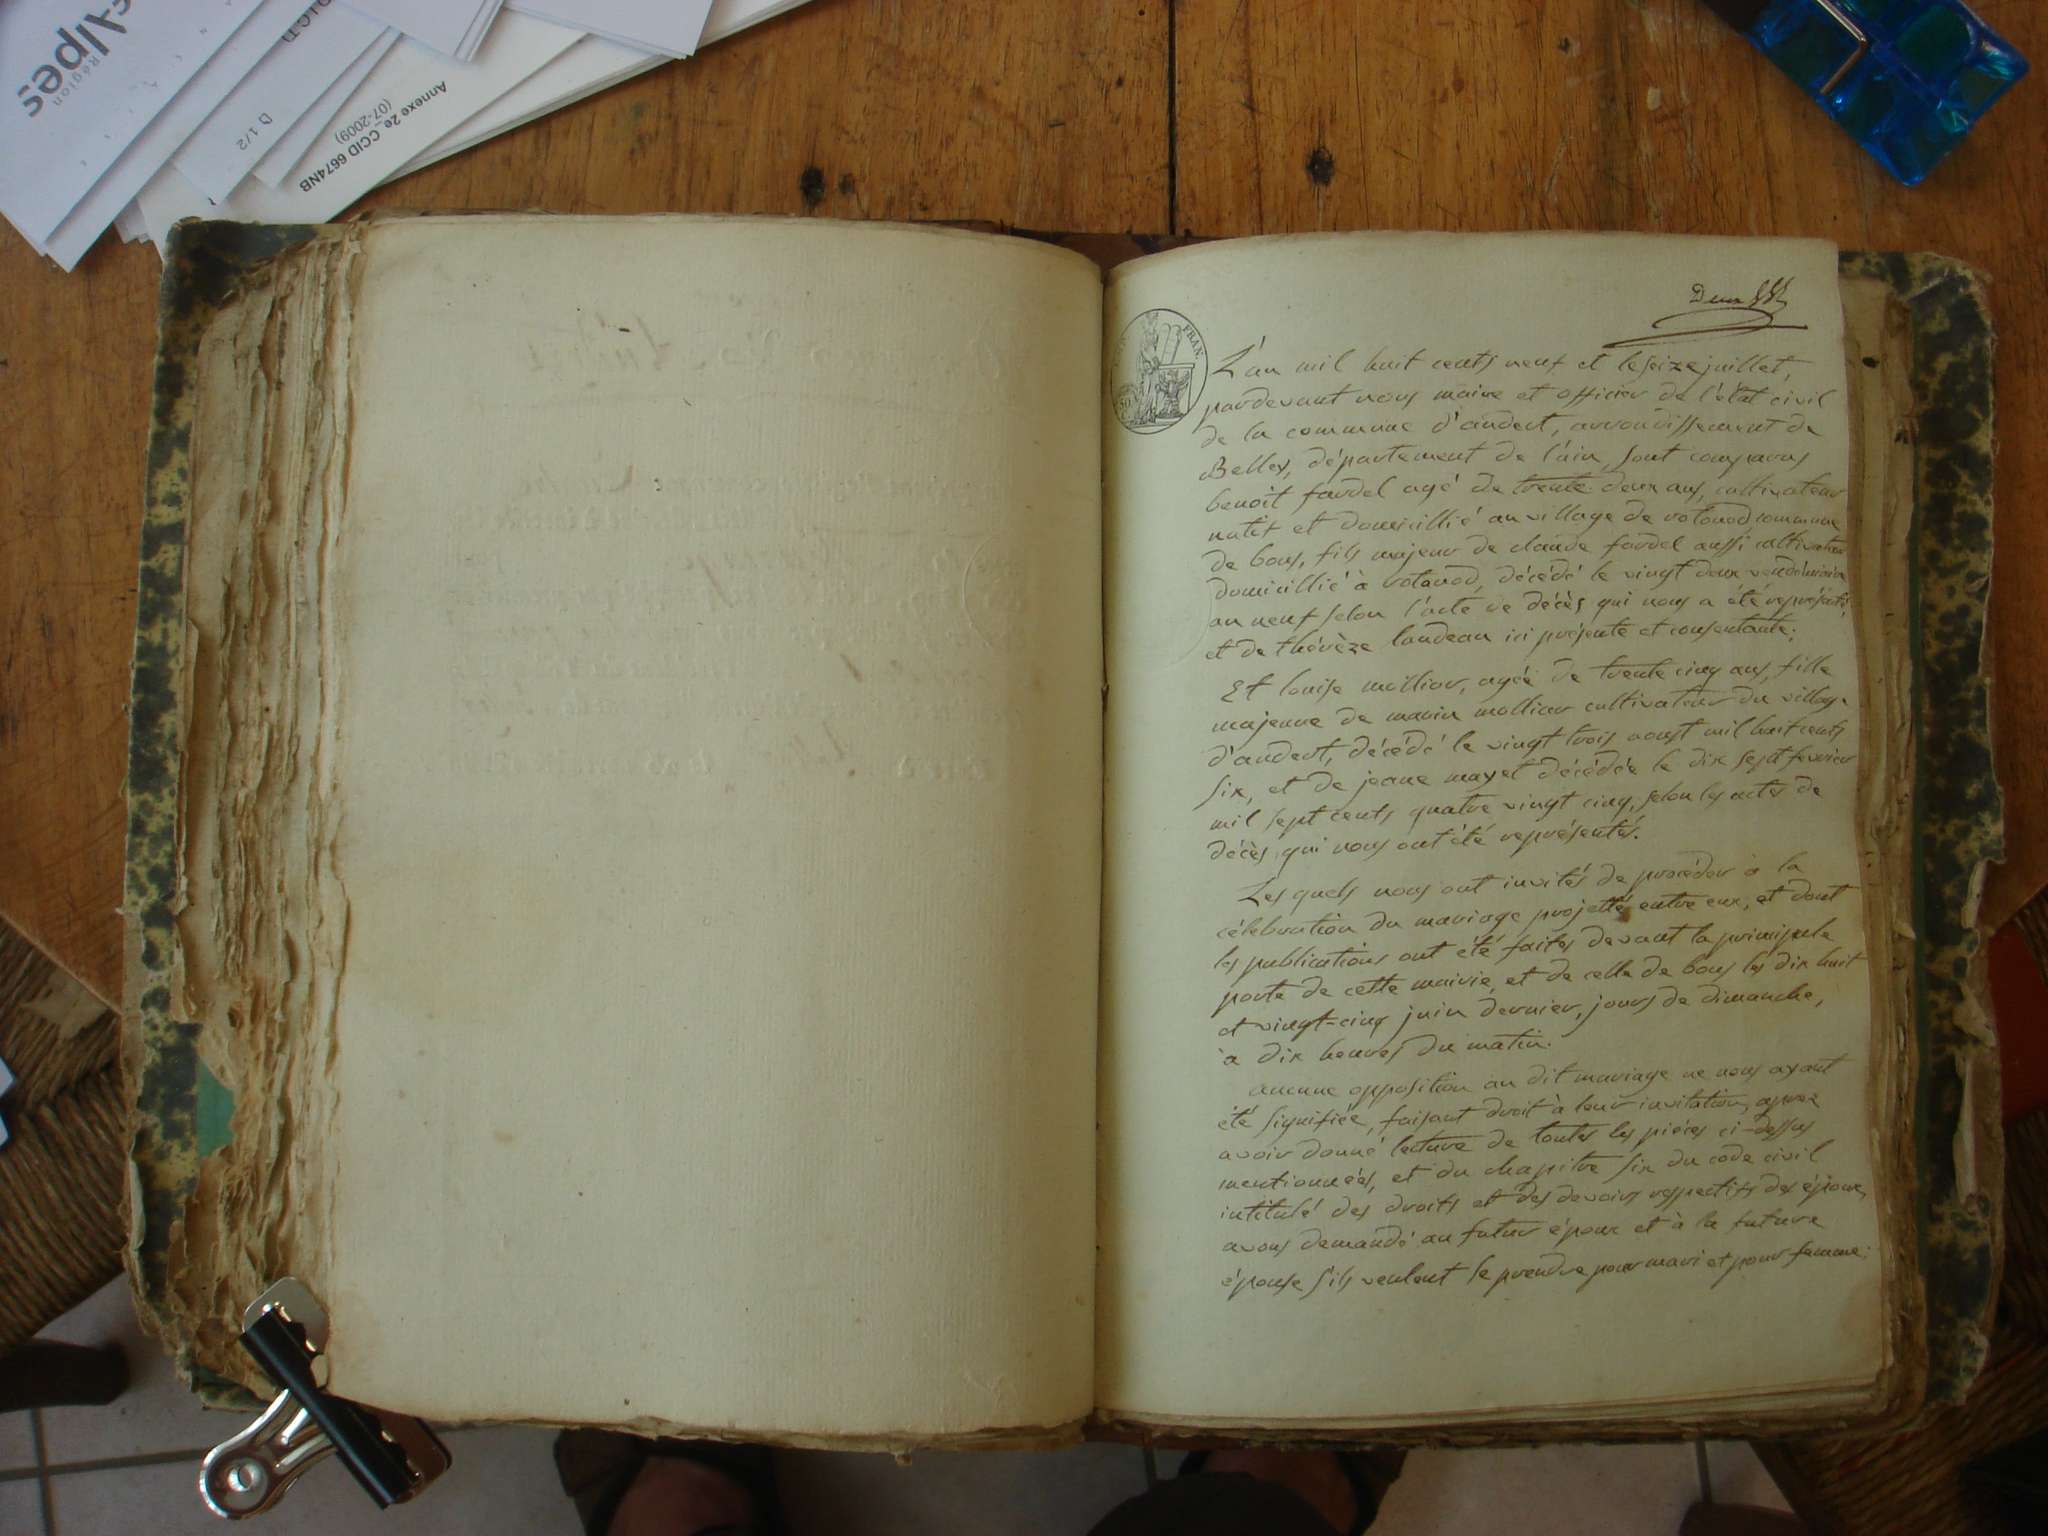 Alpes
Région
D 1/2
Annexe 2e_CCID 6674NB
(07-2009)
Deux
FRAN.
50
L'an mil huit cents neuf et le seize juillet,
pardevant nous maire et officier de l'état civil
de la commune d'andert, arrondissement de
Belley, département de l'ain, sont comparus
benoit fardel agé de trente deux ans, cultivateur
natif et domicillié au village de votonod commune
de bons, fils majeur de claude fardel aussi cultivateur
domicillié à votonod, décédé le vingt deux vendémiaire
an neuf selon l'acte de décès qui nous a été représenté,
et de thérèze laudeau ici présente et consentante;
Et louise mollier, agée de trente cinq ans, fille
majeure de marin mollier cultivateur du village
d'andert, décédé le vingt trois aoust mil huit cents
six, et de jeane mayet décédée le dix sept fevrier
mil sept cents quatre vingt cinq, selon les actes de
décès qui nous ont été représentés.
Les quels nous ont invités de procéder à la
célébration du mariage projetté entre eux, et dont
les publications ont été faites devant la principale
porte de cette mairie, et de celle de bons les dix huit
et vingt-cinq juin dernier, jours de dimanche,
à dix heures du matin.
aucune opposition au dit mariage ne nous ayant
été signifiée, faisant droit à leur invitation, après
avoir donné lecture de toutes les pièces ci-dessus
mentionnées, et du chapitre six du code civil
intitulé des droits et des devoirs respectifs des époux,
avons demandé au futur époux et à la future
épouse s'ils veulent se prendre pour mari et pour femme: